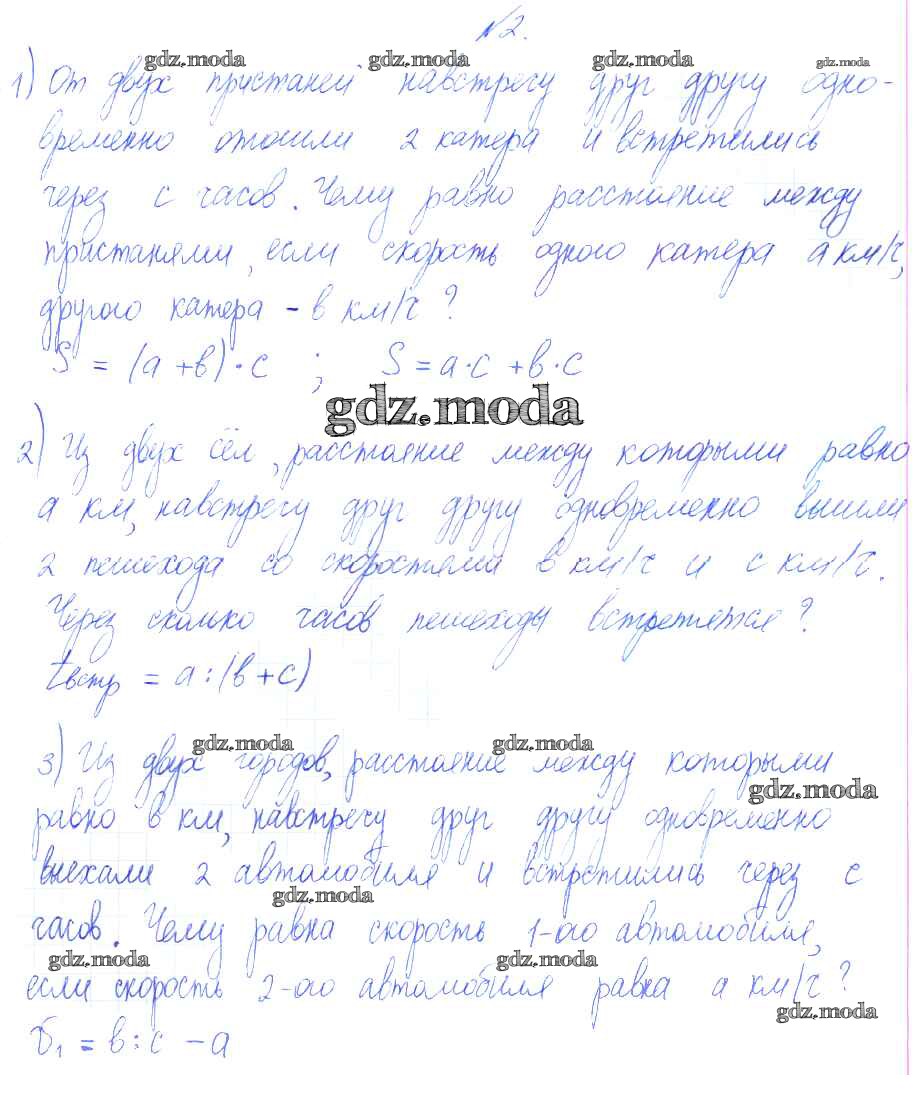 №2.
gdz.moda gdz.moda gdz.moda gdz.moda
1) От двух пристаней навстречу друг другу одно-
временно отошли 2 катера и встретились
через с часов. Чему равно расстояние между
пристанями, если скорость одного катера а км/ч,
другого катера - в км/ч?
S = (а + в) · с ; S = а · с + в · с
gdz.moda
2) Из двух сёл, расстояние между которыми равно
а км, навстречу друг другу одновременно вышли
2 пешехода со скоростями в км/ч и с км/ч.
Через сколько часов пешеходы встретятся?
tвстр = а : (в + с)
gdz.moda gdz.moda
3) Из двух городов, расстояние между которыми
gdz.moda
равно в км, навстречу друг другу одновременно
выехали 2 автомобиля и встретились через с
gdz.moda
часов. Чему равна скорость 1-ого автомобиля,
gdz.moda gdz.moda
если скорость 2-ого автомобиля равна а км/ч?
gdz.moda
V₁ = в : с - а